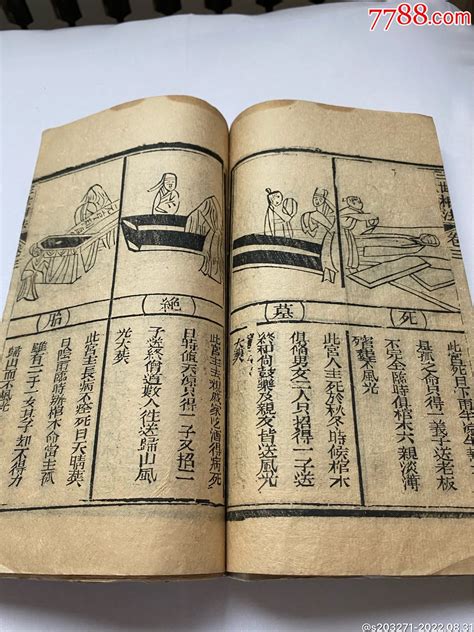 7788.com
死
此宮死日下雨
是孤之命只得一義子送老板
不完全臨時俱棺木六親淡薄
殯葬不風光
墓
此宮人主死於秋冬時候棺木
俱備男女二人只招得一子送
終和尚鼓樂及親友皆送風光
大葬
絕
此宮主病死
日時天只得一子又招一
子送終僧道數人往送歸山風
光大葬
胎
此宮主長病不痊死日天晴葬
日陰雨臨時棺木命當主孤
雖有一子一女其子却不得力
歸山而不風光
@s203271-2022.08.31